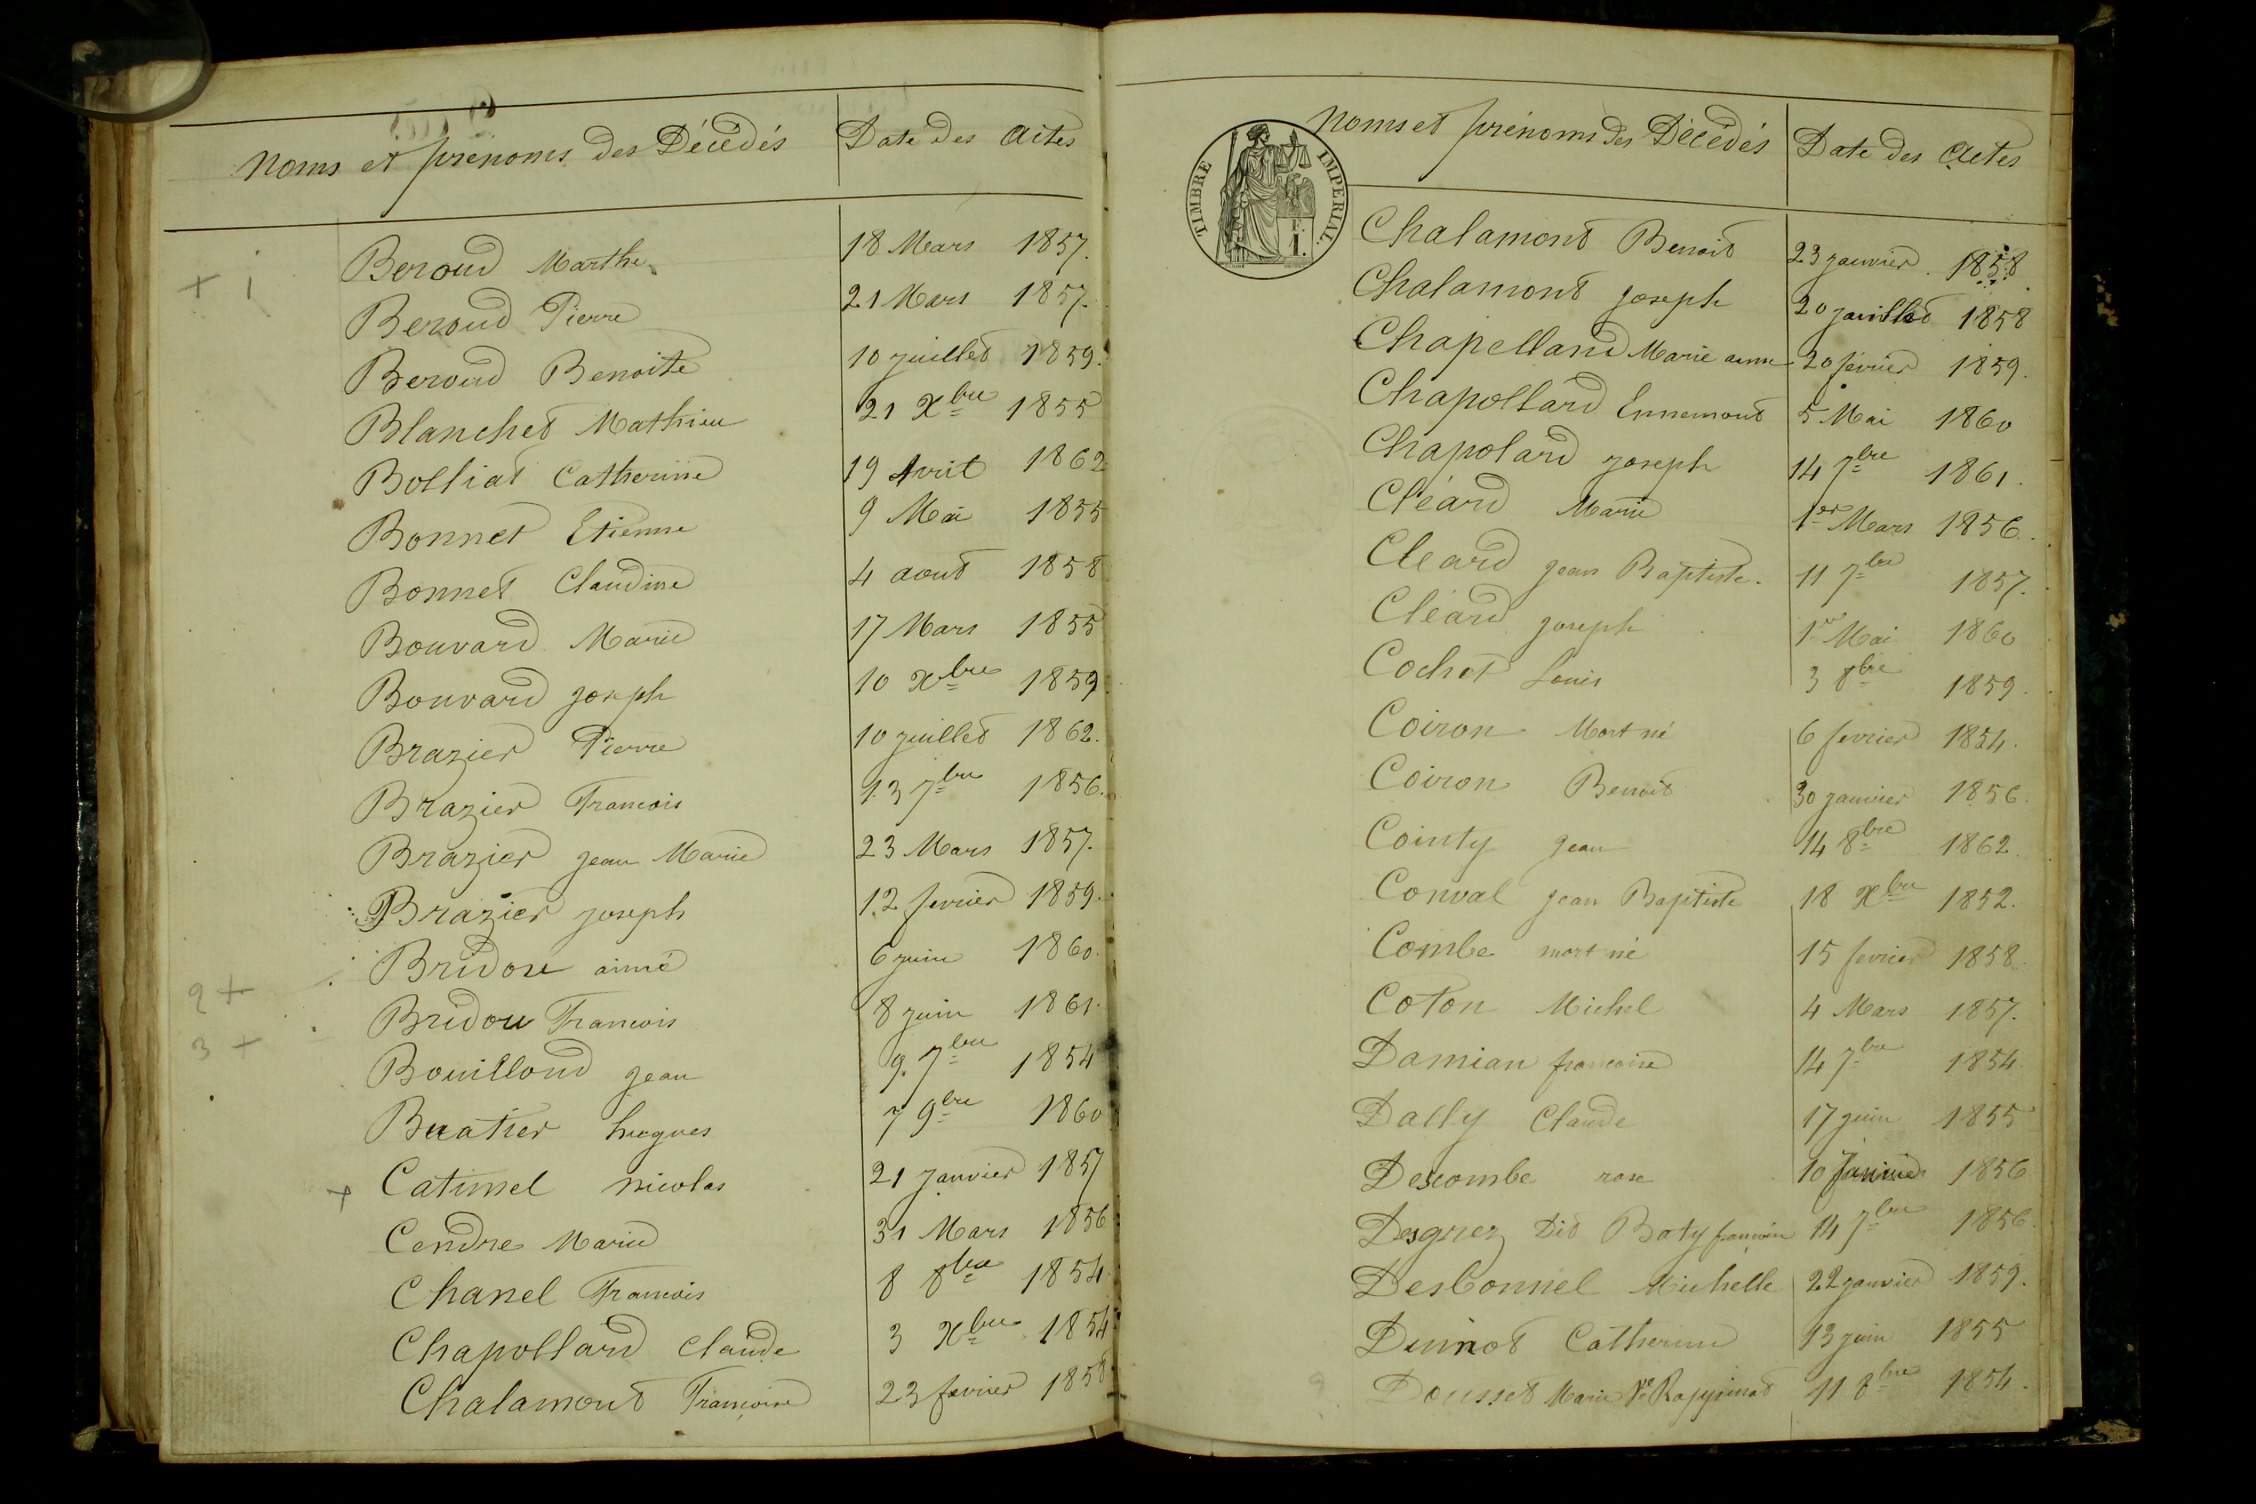 Noms et prenoms des Décédés Date des actes
+ 1 Beroud Marthe 18 Mars 1857.
Beroud Pierre 21 Mars 1857.
Beroud Benoite 10 juillet 1859.
Blanchet Mathieu 21 Xbre 1855
Bolliat Catherine 19 Avril 1862
Bonnet Etienne 9 Mai 1855
Bonnet Claudine 4 aout 1858
Bouvard Marie 17 Mars 1855
Bouvard joseph 10 Xbre 1859
Brazier Pierre 10 juillet 1862.
Brazier Francois 13 7bre 1856.
Brazier jean Marie 23 Mars 1857.
Brazier joseph 12 fevrier 1859.
2 + Bridou aimé 6 juin 1860.
3 + Bridou Francois 8 juin 1861.
Bouilloud jean 9. 7bre 1854
Buatier hugues 7 9bre 1860
+ Catimel nicolas 21 janvier 1857
Cendre Marie 31 Mars 1856
Chanel Francois 8 8bre 1854
Chapollard claude 3 Xbre 1854
Chalamont Françoise 23 fevrier 1858
TIMBRE IMPERIAL.
F. 1.
Noms et prénoms des Décédés Date des Actes
Chalamont Benoit 23 janvier 1858
Chalamont joseph 20 juillet 1858
Chapelland Marie anne 20 fevrier 1859.
Chapollard Ennemont 5 Mai 1860
Chapolard joseph 14 7bre 1861.
Cléard Marie 1er Mars 1856.
Cleard jean Baptiste. 11 7bre 1857.
Cléard joseph 1er Mai 1860
Cochet Louis 3 8bre 1859.
Coiron Mort né 6 fevrier 1854.
Coiron Benoit 30 janvier 1856.
Cointy jean 14 8bre 1862.
Conval jean Baptiste 18 Xbre 1852.
Combe mort né 15 fevrier 1858.
Coton Michel 4 Mars 1857.
Damian francoise 14 7bre 1854.
Dally Claude 17 juin 1855
Descombe rose 10 1856
Desgrez Dit Baty 14 7bre 1856.
Desbonnel Michelle 22 janvier 1859.
Duinot Catherine 13 juin 1855
Dousset Marie Ve 11 8bre 1854.